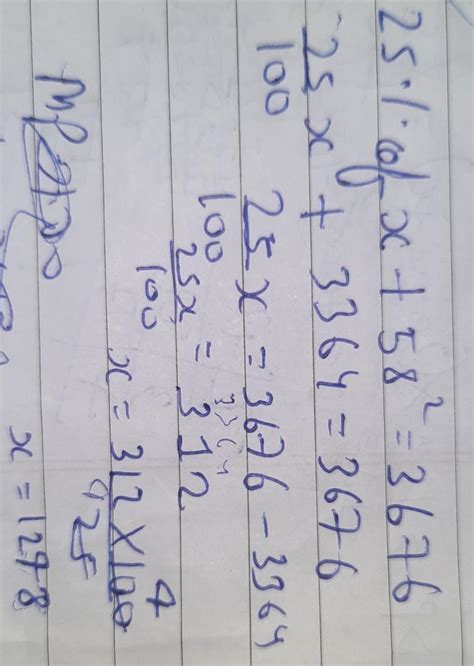 25% of x + 58² = 3676
25/100 x + 3364 = 3676
25/100 x = 3676 - 3364
3364
25x/100 = 312
x = 312 × 100 4 / 25
x = 1248